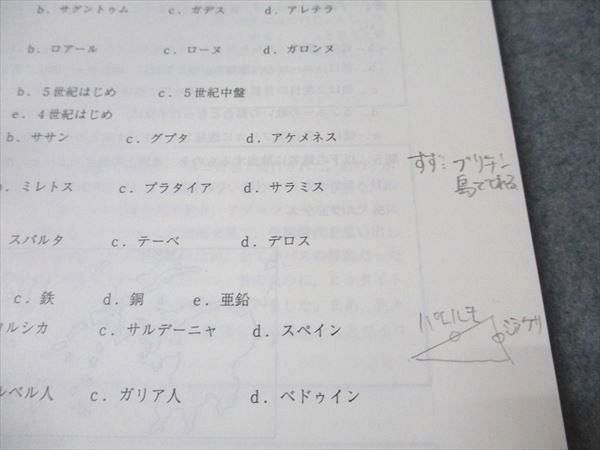 b. サグントゥム c. ガデス d. アレテラ
b. ロアール c. ローヌ d. ガロンヌ
b. 5世紀はじめ c. 5世紀中盤
e. 4世紀はじめ
b. ササン c. グプタ d. アケメネス
すず… ブリテン
島でとれる
b. ミレトス c. プラタイア d. サラミス
スパルタ c. テーベ d. デロス
c. 鉄 d. 銅 e. 亜鉛
パレルモ
ルシカ c. サルデーニャ d. スペイン
ルベル人 c. ガリア人 d. ベドゥイン